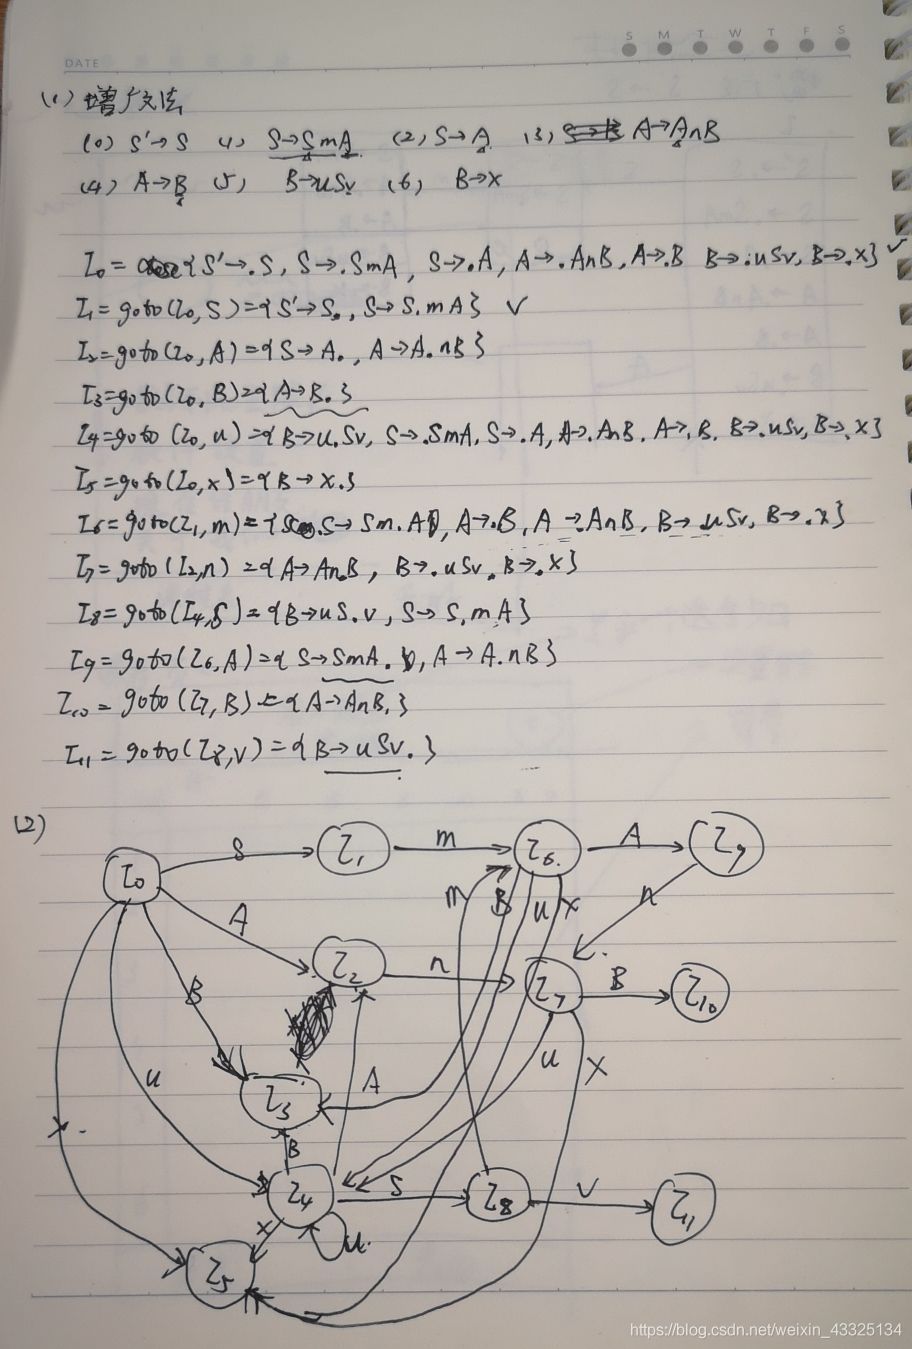 S M T W T F S
DATE
(1) 增广文法
(0) S'→S (1) S→SmA (2) S→A (3) A→AnB
(4) A→B (5) B→uSv (6) B→x
I0 = {S'→.S, S→.SmA, S→.A, A→.AnB, A→.B B→.uSv, B→.x} ✓
I1=goto(I0,S)={S'→S., S→S.mA} ✓
I2=goto(I0,A)={S→A., A→A.nB}
I3=goto(I0,B)={A→B.}
I4=goto(I0,u)={B→u.Sv, S→.SmA, S→.A, A→.AnB, A→.B, B→.uSv, B→.x}
I5=goto(I0,x)={B→x.}
I6=goto(I1,m)={S→Sm.A, A→.B, A→.AnB, B→.uSv, B→.x}
I7=goto(I2,n)={A→An.B, B→.uSv, B→.x}
I8=goto(I4,S)={B→uS.v, S→S.mA}
I9=goto(I6,A)={S→SmA., A→A.nB}
I10=goto(I7,B)={A→AnB.}
I11=goto(I8,v)={B→uSv.}
(2)
I0 S I1 m I6 A I9
A m B u x n
I2 n I7 B I10
B u x
u I3 A
x B
I4 S I8 v I11
x u
I5
https://blog.csdn.net/weixin_43325134